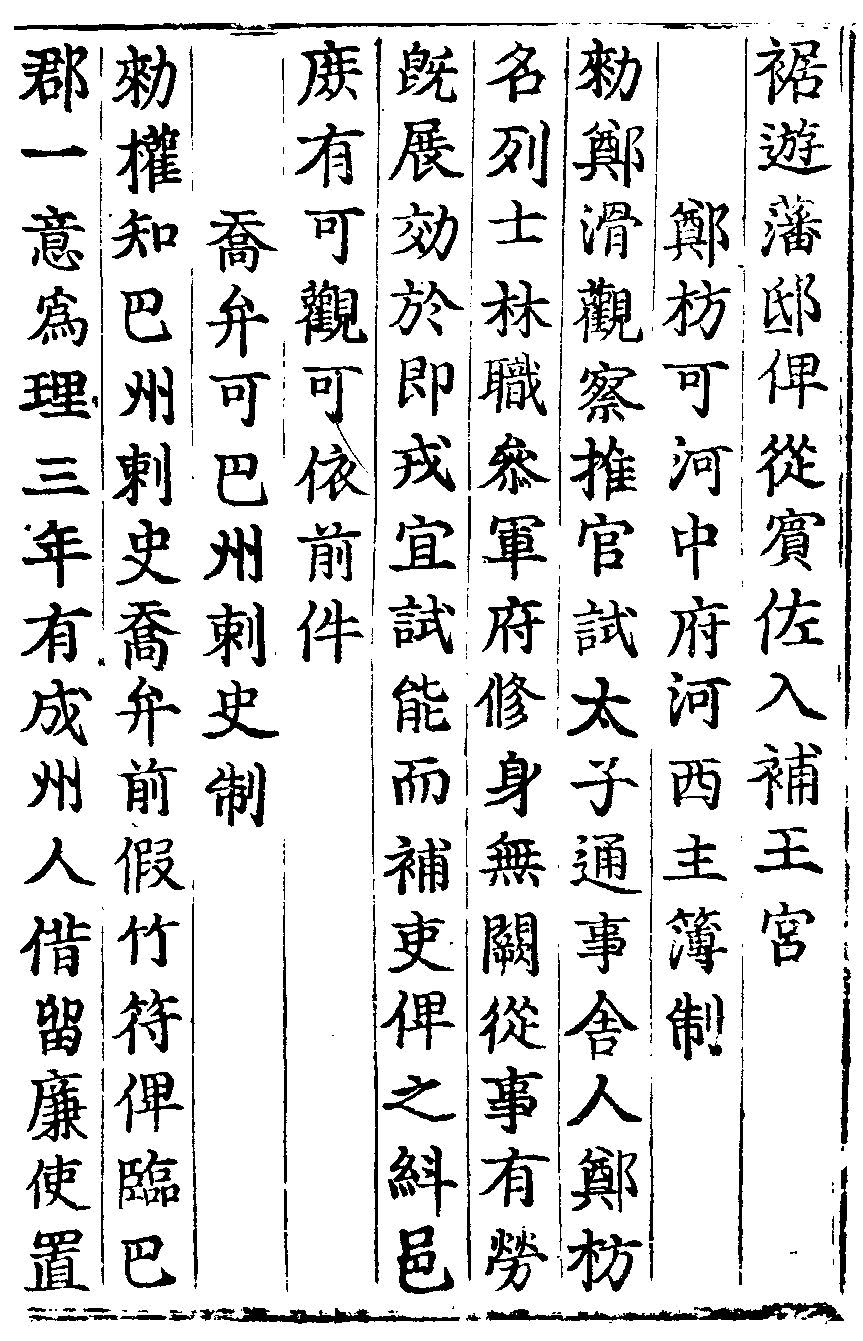 裾遊藩邸俾從賓佐入補王宮
鄭枋可河中府河西主簿制
勑鄭滑觀察推官試太子通事舍人鄭枋
名列士林職叅軍府修身無闕從事有勞
旣展効於即戎宜試能而補吏俾之糾邑
庶有可觀可依前件
喬弁可巴州刺史制
勑權知巴州刺史喬弁前假竹符俾臨巴
郡一意爲理三年有成州人借留廉使置